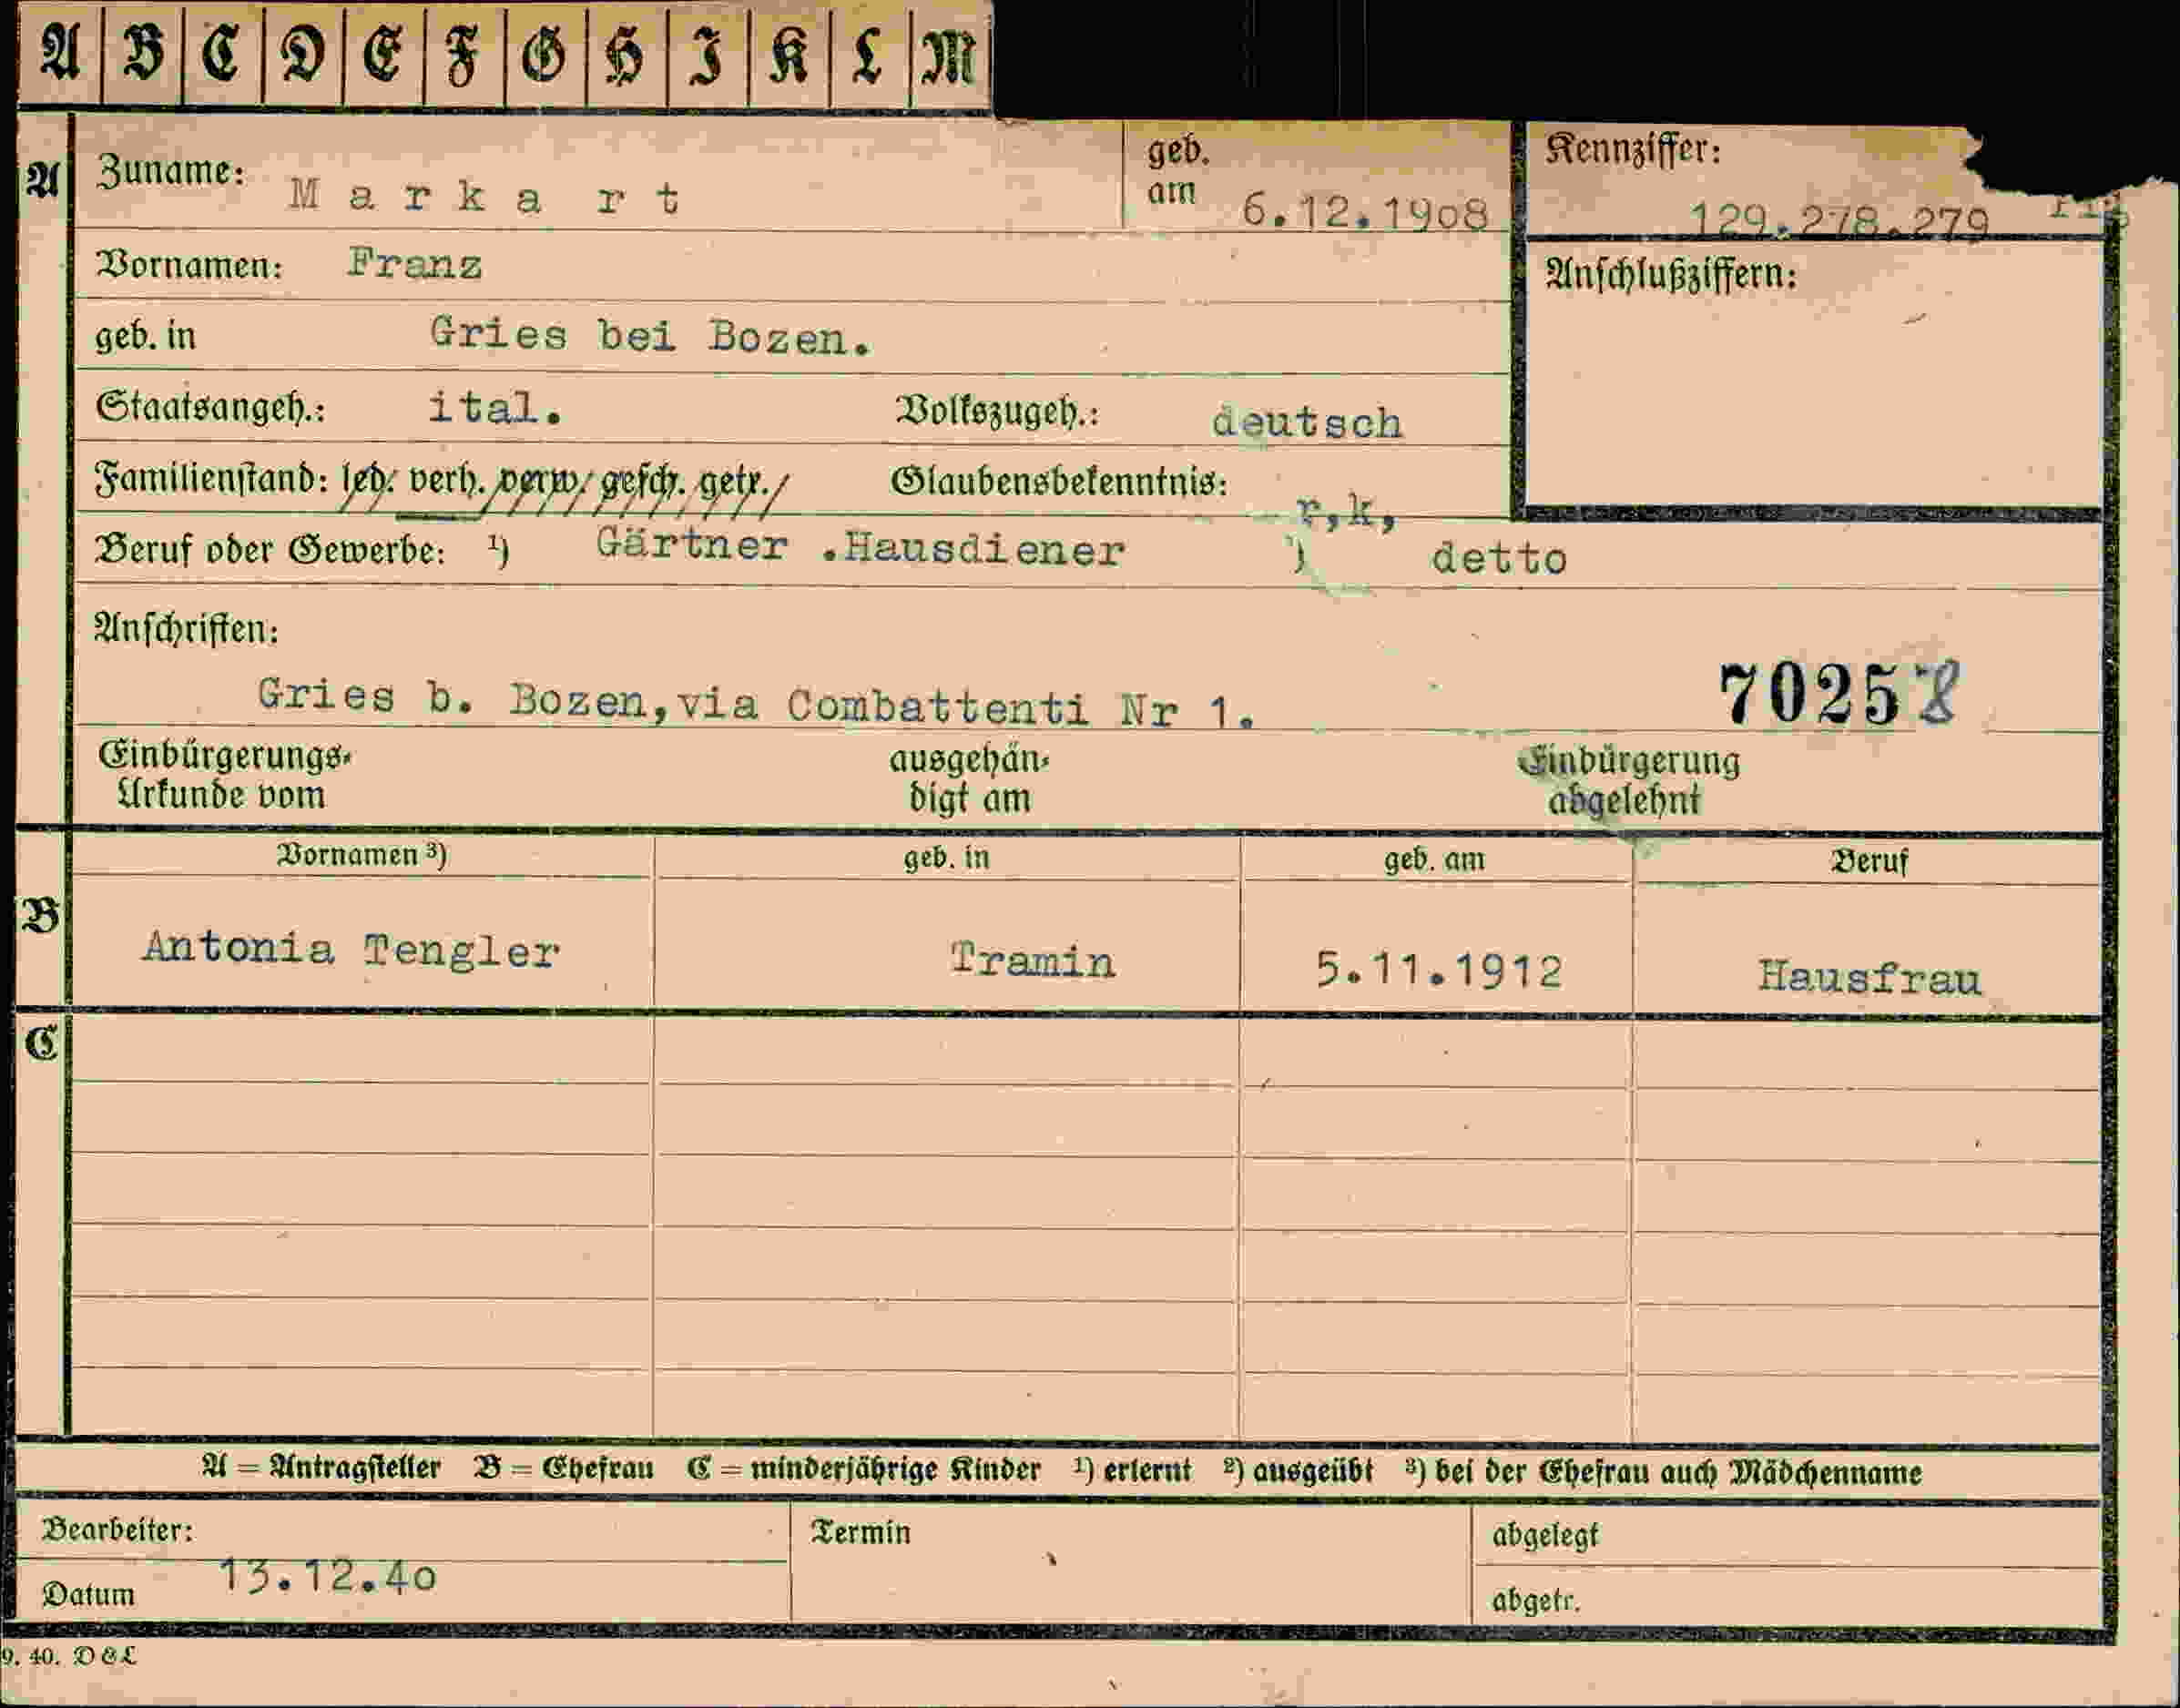 A B C D E F G H I K L M
A Zuname: Markart geb. am 6.12.1908 Kennziffer: 129.278.279
Vornamen: Franz Anschlußziffern:
geb. in Gries bei Bozen.
Staatsangeh.: ital. Volkszugeh.: deutsch
Familienstand: led. verh. verw. gesch. getr. Glaubensbekenntnis: r,k,
Beruf oder Gewerbe: ¹) Gärtner .Hausdiener ²) detto
Anschriften:
Gries b. Bozen, via Combattenti Nr 1. 7025
Einbürgerungs- ausgehän- Einbürgerung
Urkunde vom digt am abgelehnt
Vornamen ³) geb. in geb. am Beruf
B Antonia Tengler Tramin 5.11.1912 Hausfrau
C
A = Antragsteller B = Ehefrau C = minderjährige Kinder ¹) erlernt ²) ausgeübt ³) bei der Ehefrau auch Mädchenname
Bearbeiter: Termin abgelegt
Datum 13.12.40 abgetr.
9. 40. D&L